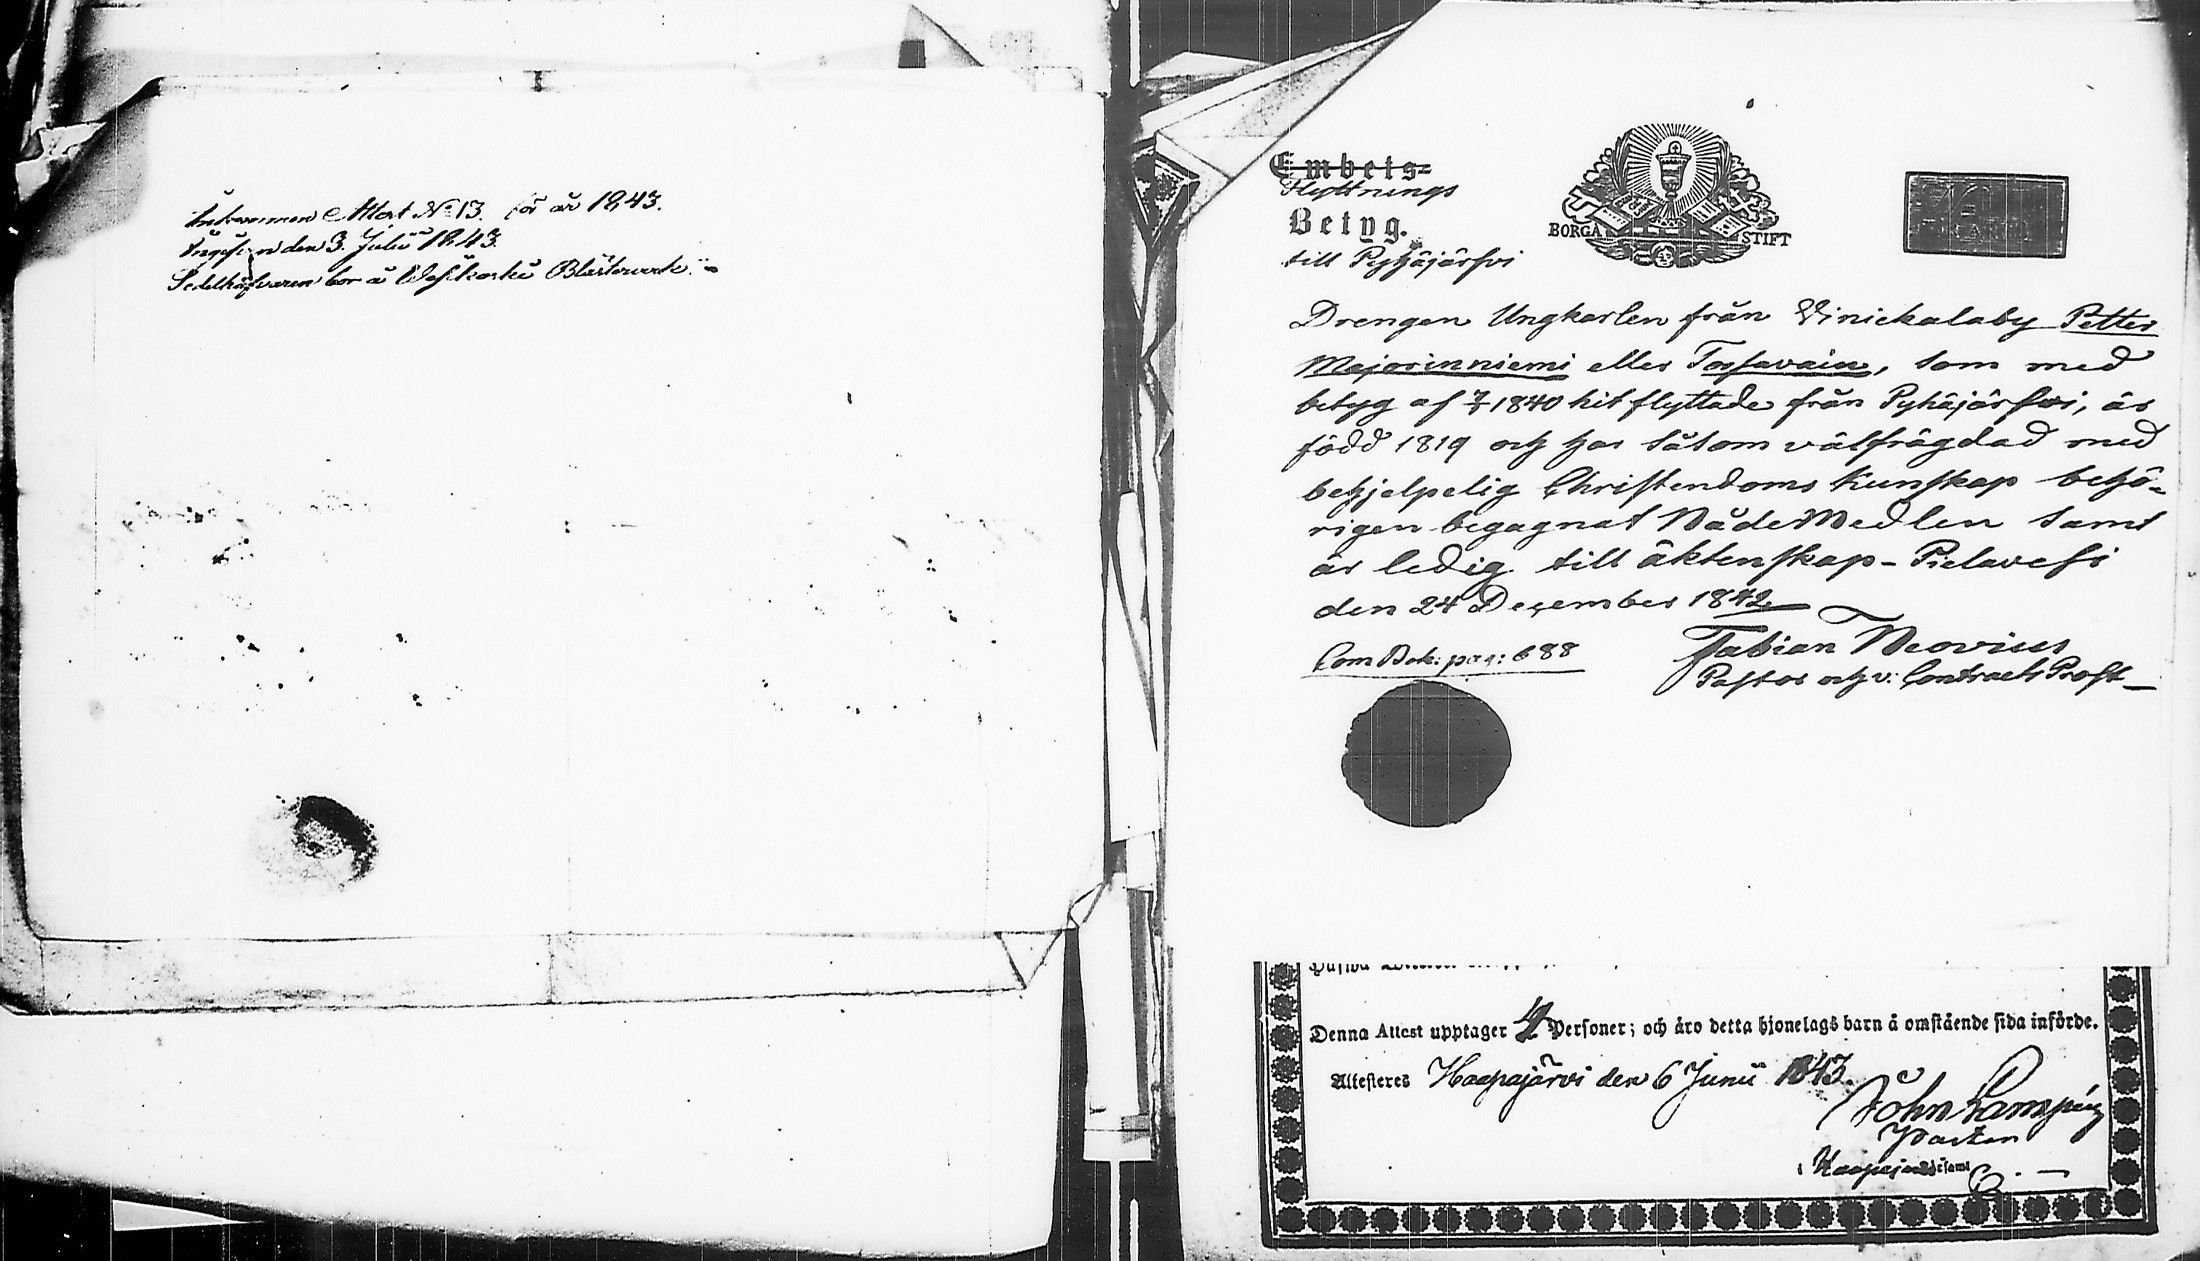 Ankommen Attest No 13. för år 1843.
Angifven den 3. Julii 1843.
Sedelhafvaren bor å Westkoski Blästerverk.
Embets=
Flyttnings
Betyg.
till Pyhäjärfvi
BORGÅ STIFT
Drengen Ungkarlen från Winickalaby Petter
Majorinniemi eller Tossavain, som med
betyg af 1840 hit flyttade från Pyhäjärfvi, är
född 1819 och har såsom välfrägdad med
behjelpelig Christendoms kunskap behö-
rigen begagnat NådeMedlen samt
är ledig till äktenskap - Pielavesi
den 24 December 1842
Fabian Neovius
Com Bok: pag: 688
Pastor och v: Contracts Prost
Denna Attest upptager 4 Personer; och äro detta hjonelags barn å omstående sida införde.
Attesteres Haapajärvi den 6 Junii 1843.
Joh Lampén
Pastor
i Haapajärvi